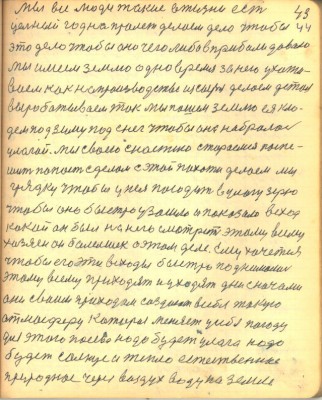 Мы все люди такие в жизни ест 43
целый год на пролет делаем дело чтобы 44
это дело чтобы оно чего либо в прибыл давало
Мы имеем землю одно время за нею ухажи
ваем как на производстве из сырья делаем детал
вырабатываем так мы пашем землю ея кла
дем под зиму под снег чтобы она набралас
улагой. Мы своей снастию стараемся поспе
шит попаст сделат с этой пахоти делаем мы
грядку чтобы у нея посадит в улагу зерно
чтобы оно быстро узошло и показало всход
какой он был на него смотрет этому всему
хозяен он балельщик в этом деле. Ему хочется
чтобы его эти всходы быстро поднимались
этому всему приходят и уходят дни сначала
они своим приходом создают в себя такую
атмасферу которая меняет у себя погоду
для этого посева надо будет улага надо
будет солнце и тепло естественное
природное через воздух воду на земле